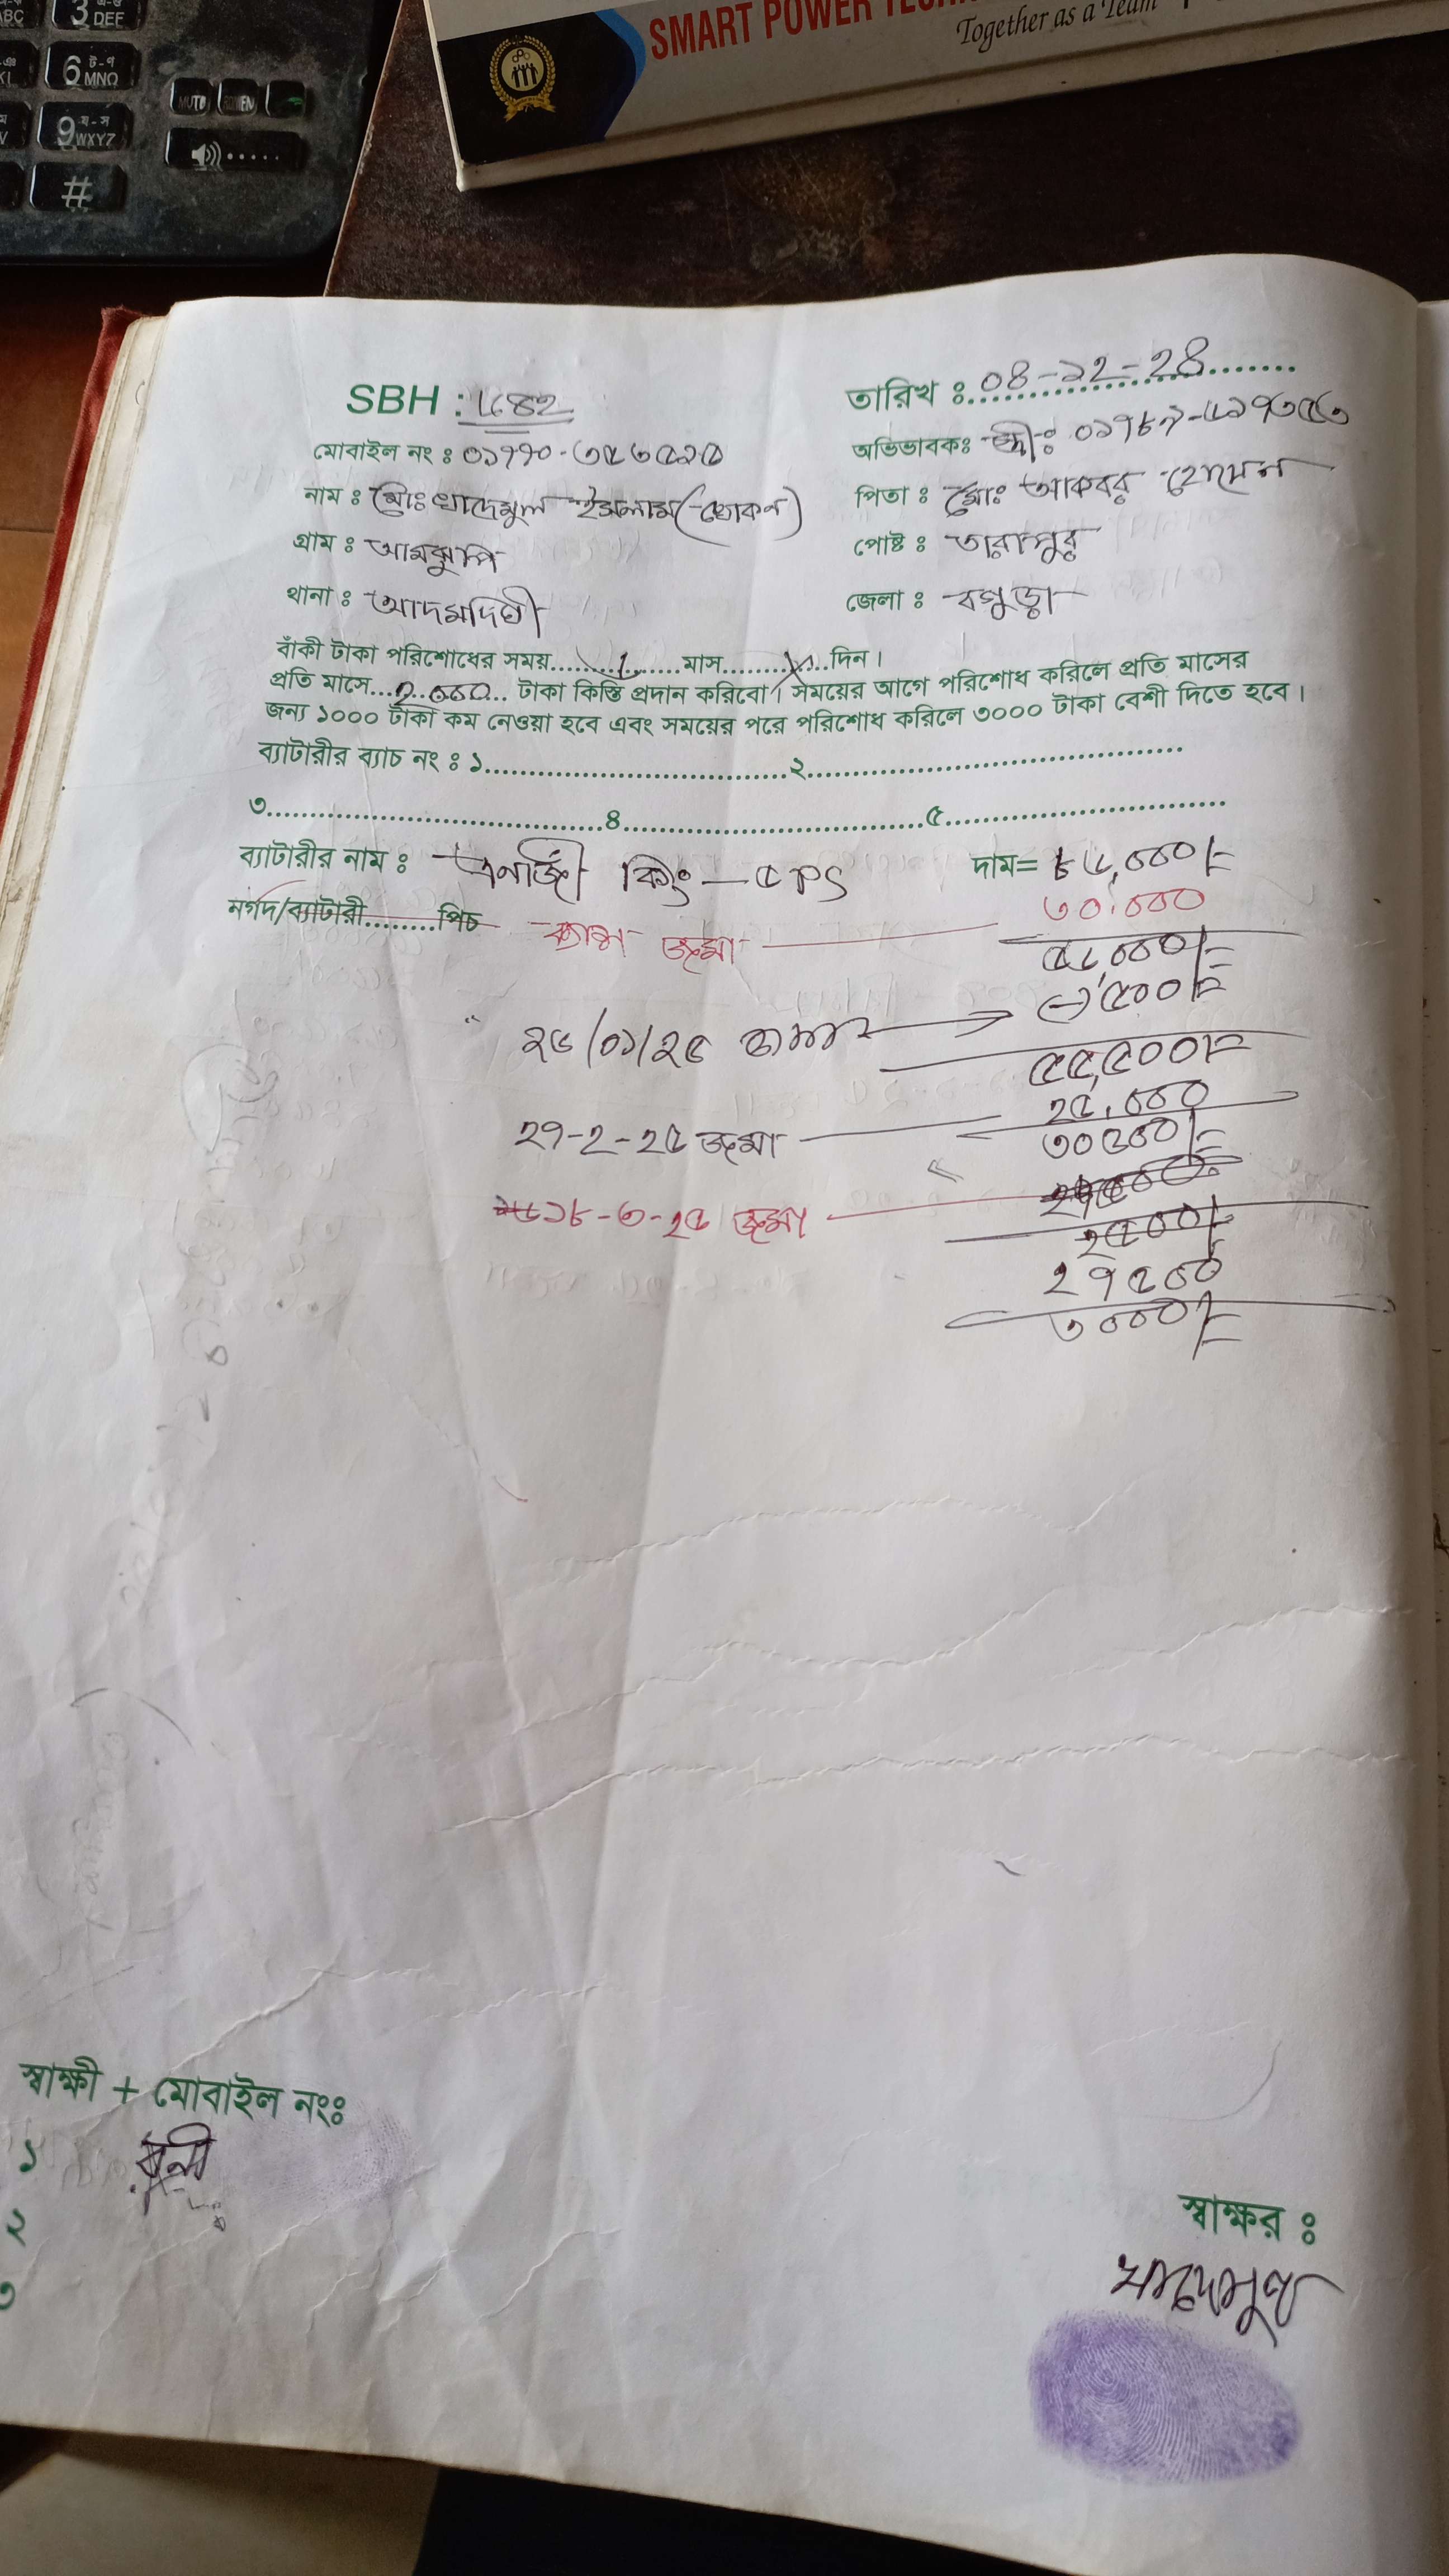 3 DEF
ABC
6 ট-ণ MNO
9 য-স WXYZ
MUTE
#
SMART POWER
Together as a Team
SBH :
তারিখ ঃ ০৪-১২-২৪
মোবাইল নং ঃ ০১৭৭০-৩৫৩৫২৫
অভিভাবকঃ স্ত্রীঃ
নাম ঃ মোঃ খাদেমুল ইসলাম (খোকন)
পিতা ঃ মোঃ আকবর হোসেন
গ্রাম ঃ আমঝুপি
পোষ্ট ঃ তারাপুর
থানা ঃ আদমদিঘী
জেলা ঃ বগুড়া
বাঁকী টাকা পরিশোধের সময়.....১.....মাস.....x.....দিন।
প্রতি মাসে....... টাকা কিস্তি প্রদান করিবো। সময়ের আগে পরিশোধ করিলে প্রতি মাসের
জন্য ১০০০ টাকা কম নেওয়া হবে এবং সময়ের পরে পরিশোধ করিলে ৩০০০ টাকা বেশী দিতে হবে।
ব্যাটারীর ব্যাচ নং ঃ ১..............................২..............................
৩..............................৪..............................৫..............................
ব্যাটারীর নাম ঃ এনার্জী কিং — ৫ PS
দাম= ৮৬,০০০/=
নগদ/ব্যাটারী.........পিচ
ক্যাশ জমা ৩০,০০০
৫৬,০০০/=
২৬/০১/২৫ (-) ৫০০/=
৫৫,৫০০/=
২৭-২-২৫ জমা ২৫,০০০
৩০৫০০/=
১৮-৩-২৫ জমা
২৫০০/=
২৭৫০০
৩০০০/=
স্বাক্ষী + মোবাইল নংঃ
১
২
৩
স্বাক্ষর ঃ
খাদেমুল